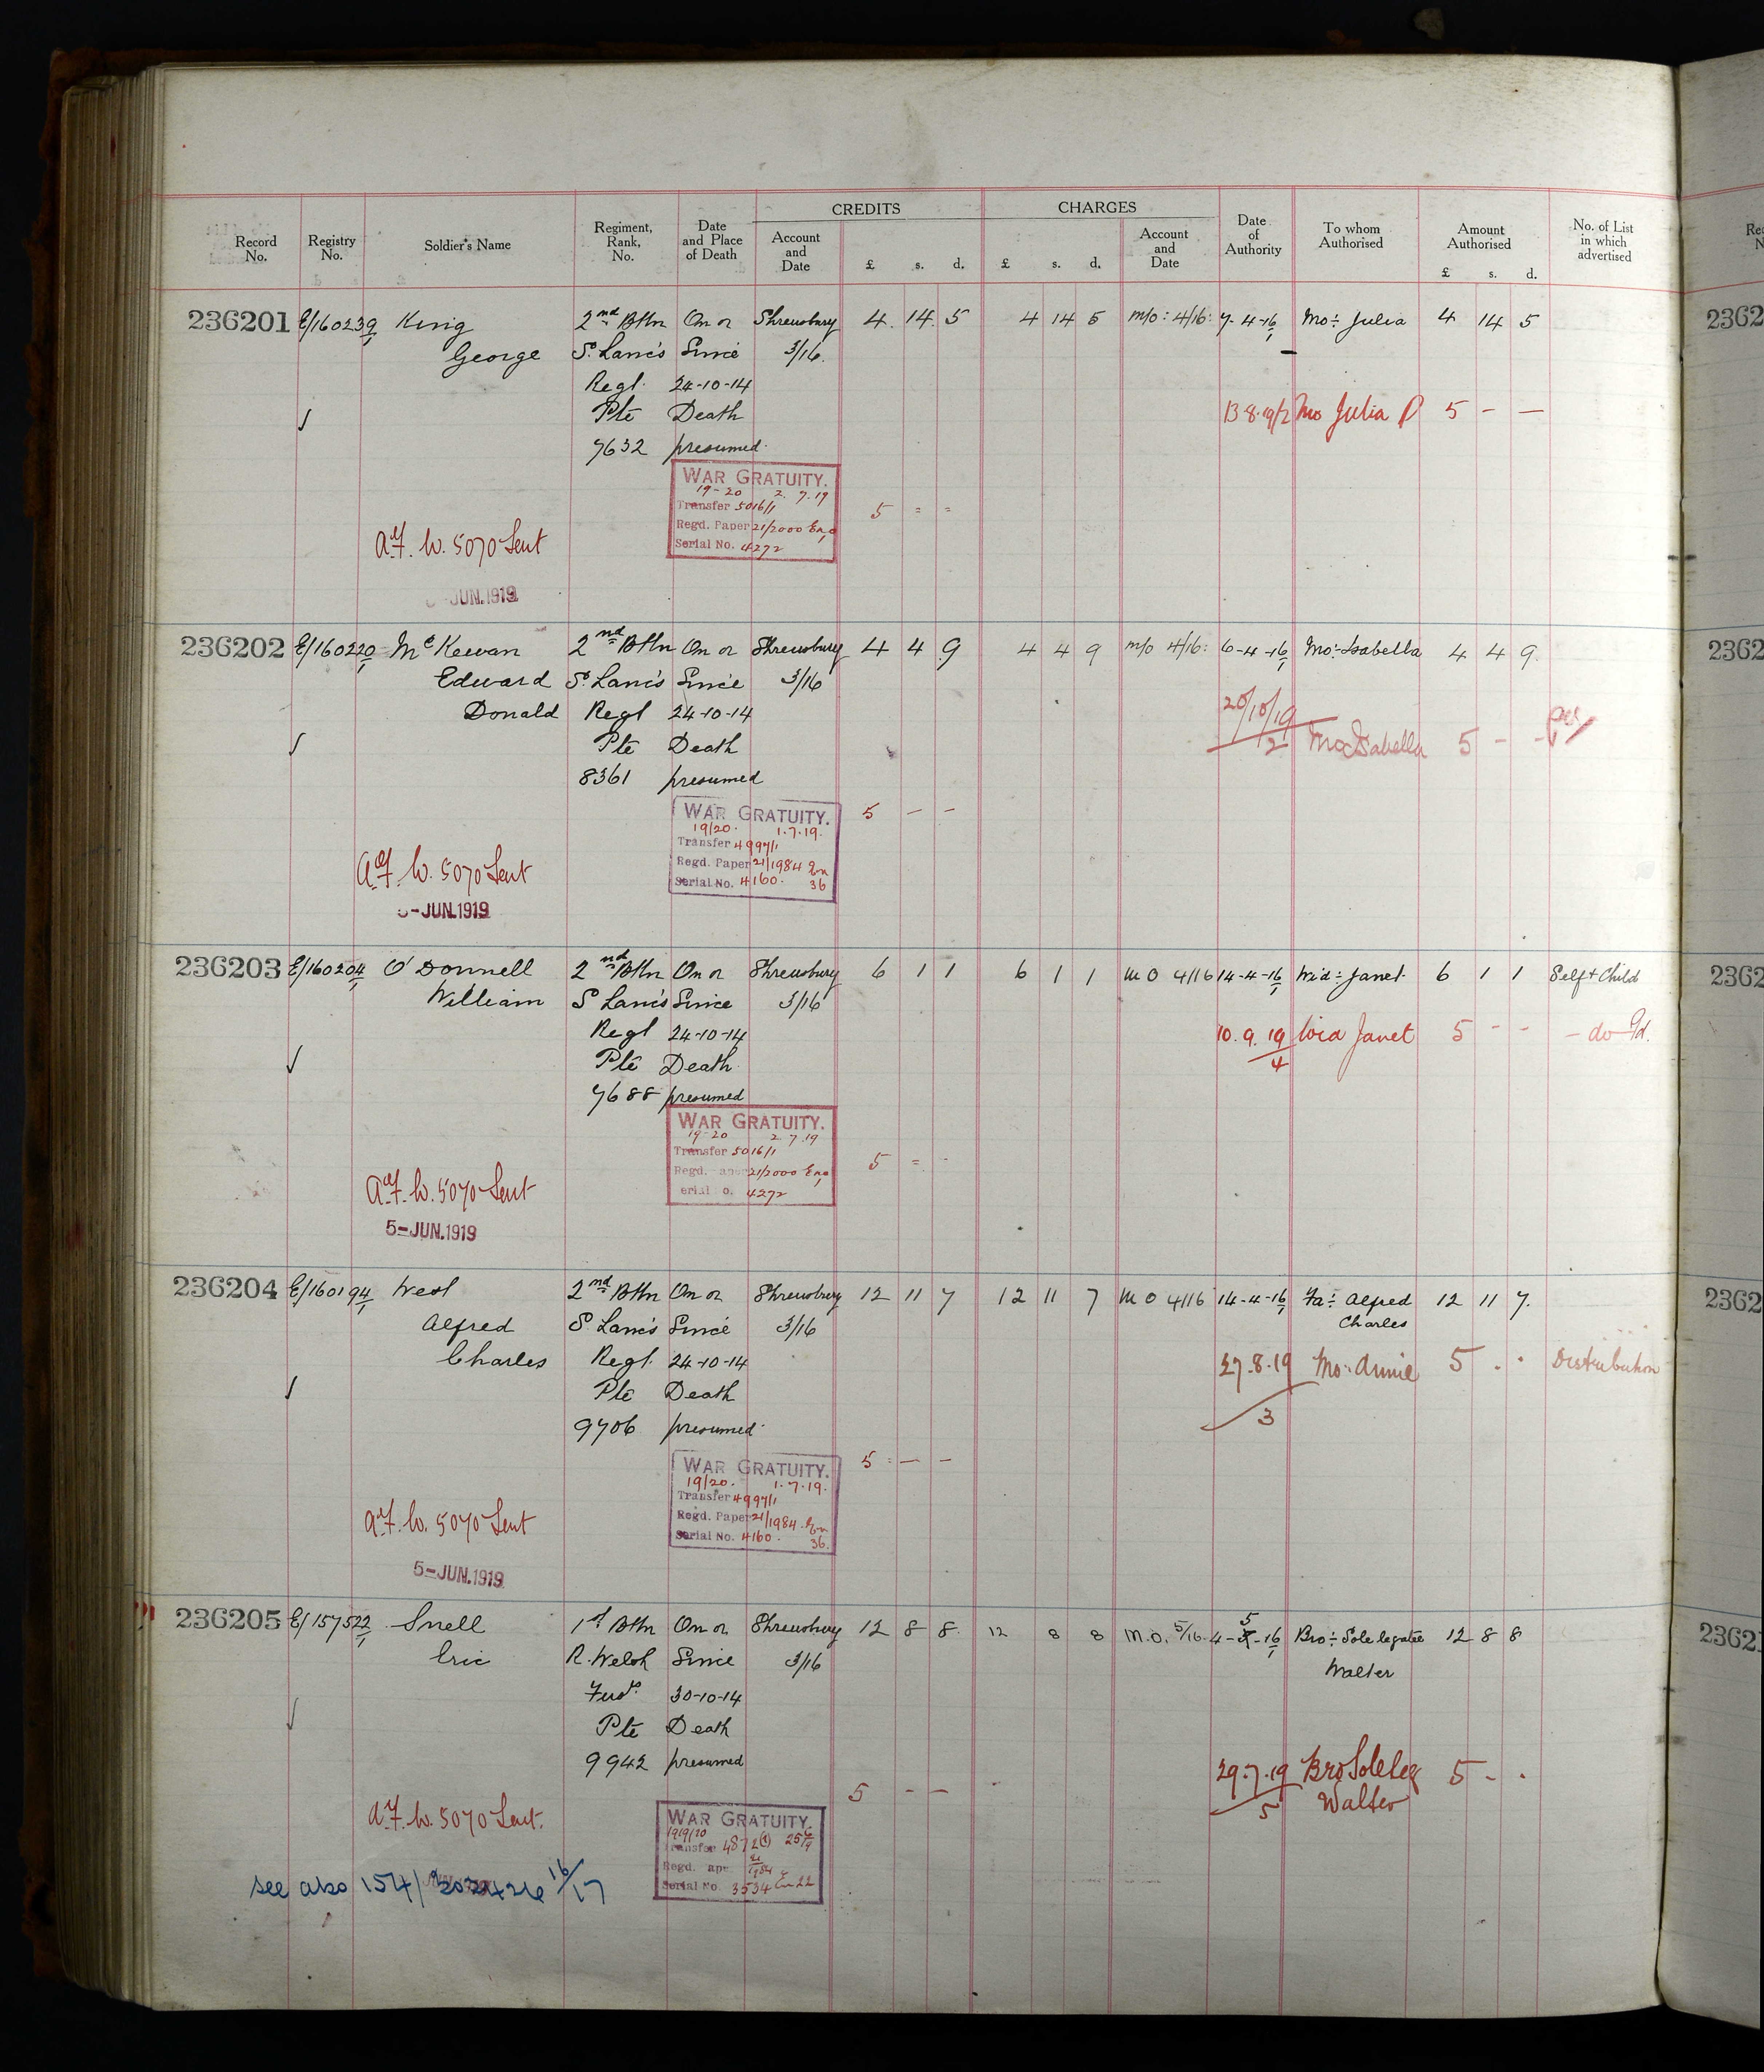 CREDITS CHARGES
Record No. Registry No. Soldier's Name Regiment, Rank, No. Date and Place of Death Account and Date £ s. d. £ s. d. Account and Date Date of Authority To whom Authorised Amount Authorised £ s. d. No. of List in which advertised
236201 E/160239/1 King 2nd Bttn On or Shrewsbury 4 14 5 4 14 5 M/O: 4/16: 7-4-16/1 Mo: Julia 4 14 5
George S. Lancs Since 3/16.
Regt. 24-10-14
Pte Death 13.8.19/2 Mo Julia P 5 - -
7632 presumed.
WAR GRATUITY.
19-20 2.7.19
Transfer 5016/1 5 = =
Regd. Paper 21/2000
Serial No. 4272
A.F. W. 5070 Sent
JUN.1919
236202 E/160220/1 McKewan 2nd Bttn On or Shrewsbury 4 4 9 4 4 9 M/O 4/16: 6-4-16/1 Mo: Isabella 4 4 9
Edward S. Lancs Since 3/16
Donald Regt 24-10-14 20/10/19
Pte Death 2 Mo Isabella 5 - -
8361 presumed
WAR GRATUITY. 5 - -
19/20. 1.7.19.
Transfer 4997/1
Regd. Paper 21/1984
Serial No. 4160. 36
A.F. W. 5070 Sent
-JUN.1919
236203 E/160204/1 O'Donnell 2nd Bttn On or Shrewsbury 6 1 1 6 1 1 M O 4/16 14-4-16/1 Wid: Janet 6 1 1 Self + Child
William S Lancs Since 3/16
Regt 24-10-14 10.9.19/4 Wid Janet 5 - - - do -
Pte Death
7688 presumed
WAR GRATUITY.
19-20 2.7.19
Transfer 5016/1 5 = -
Regd. 21/2000
4272
A.F. W. 5070 Sent
5-JUN.1919
236204 E/160194/1 West 2nd Bttn On or Shrewsbury 12 11 7 12 11 7 M O 4/16 14-4-16/1 Fa: Alfred Charles 12 11 7.
Alfred S. Lancs Since 3/16
Charles Regt. 24-10-14 27.8.19/3 Mo: Annie 5 . . Distribution
Pte Death
9706 presumed.
WAR GRATUITY. 5 - -
19/20. 1.7.19.
Transfer 4997/1
Regd. Paper 21/1984
Serial No. 4160. 36.
A.F. W. 5070 Sent
5-JUN.1919
236205 E/157522/1 Snell 1st Bttn On or Shrewsbury 12 8 8 12 8 8 M.O. 5/16 4-5-16/1 Bro: Sole legatee 12 8 8
Eric R. Welsh Since 3/16 Walter
Fus. 30-10-14
Pte Death
9942 presumed 29.7.19/5 Bro Sole Leg 5 - .
5 - - Walter
A.F. W. 5070 Sent.
WAR GRATUITY.
1919/20
Transfer 4872
Regd.
Serial No. 3534
see also 154/ 16/17